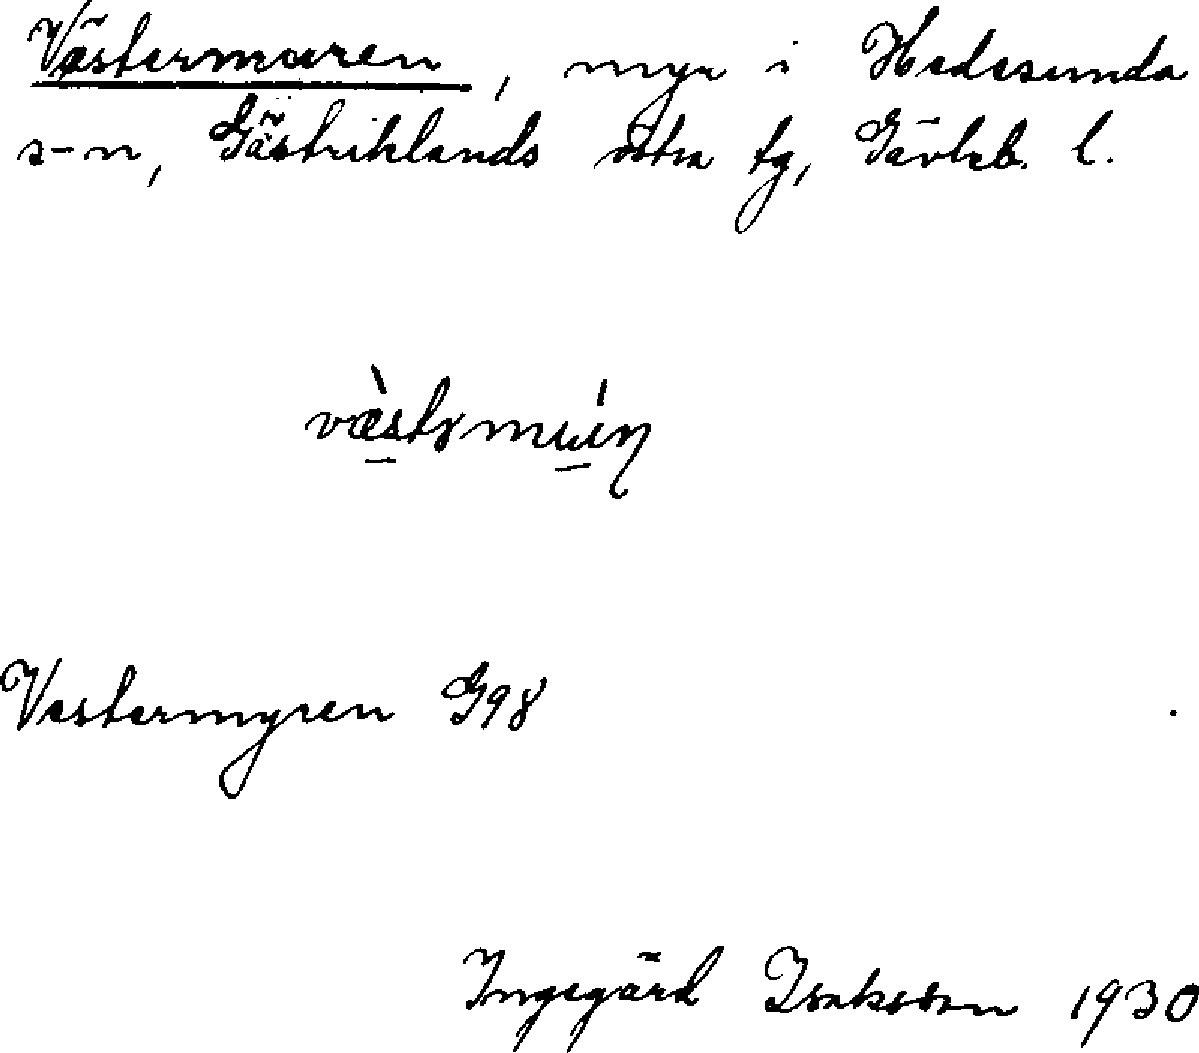 Västermuren, myr i Hedesunda
s-n, Gästriklands östra tg, Gävleb. l.
Vestermyren G98
Ingegärd Isaksson 1930